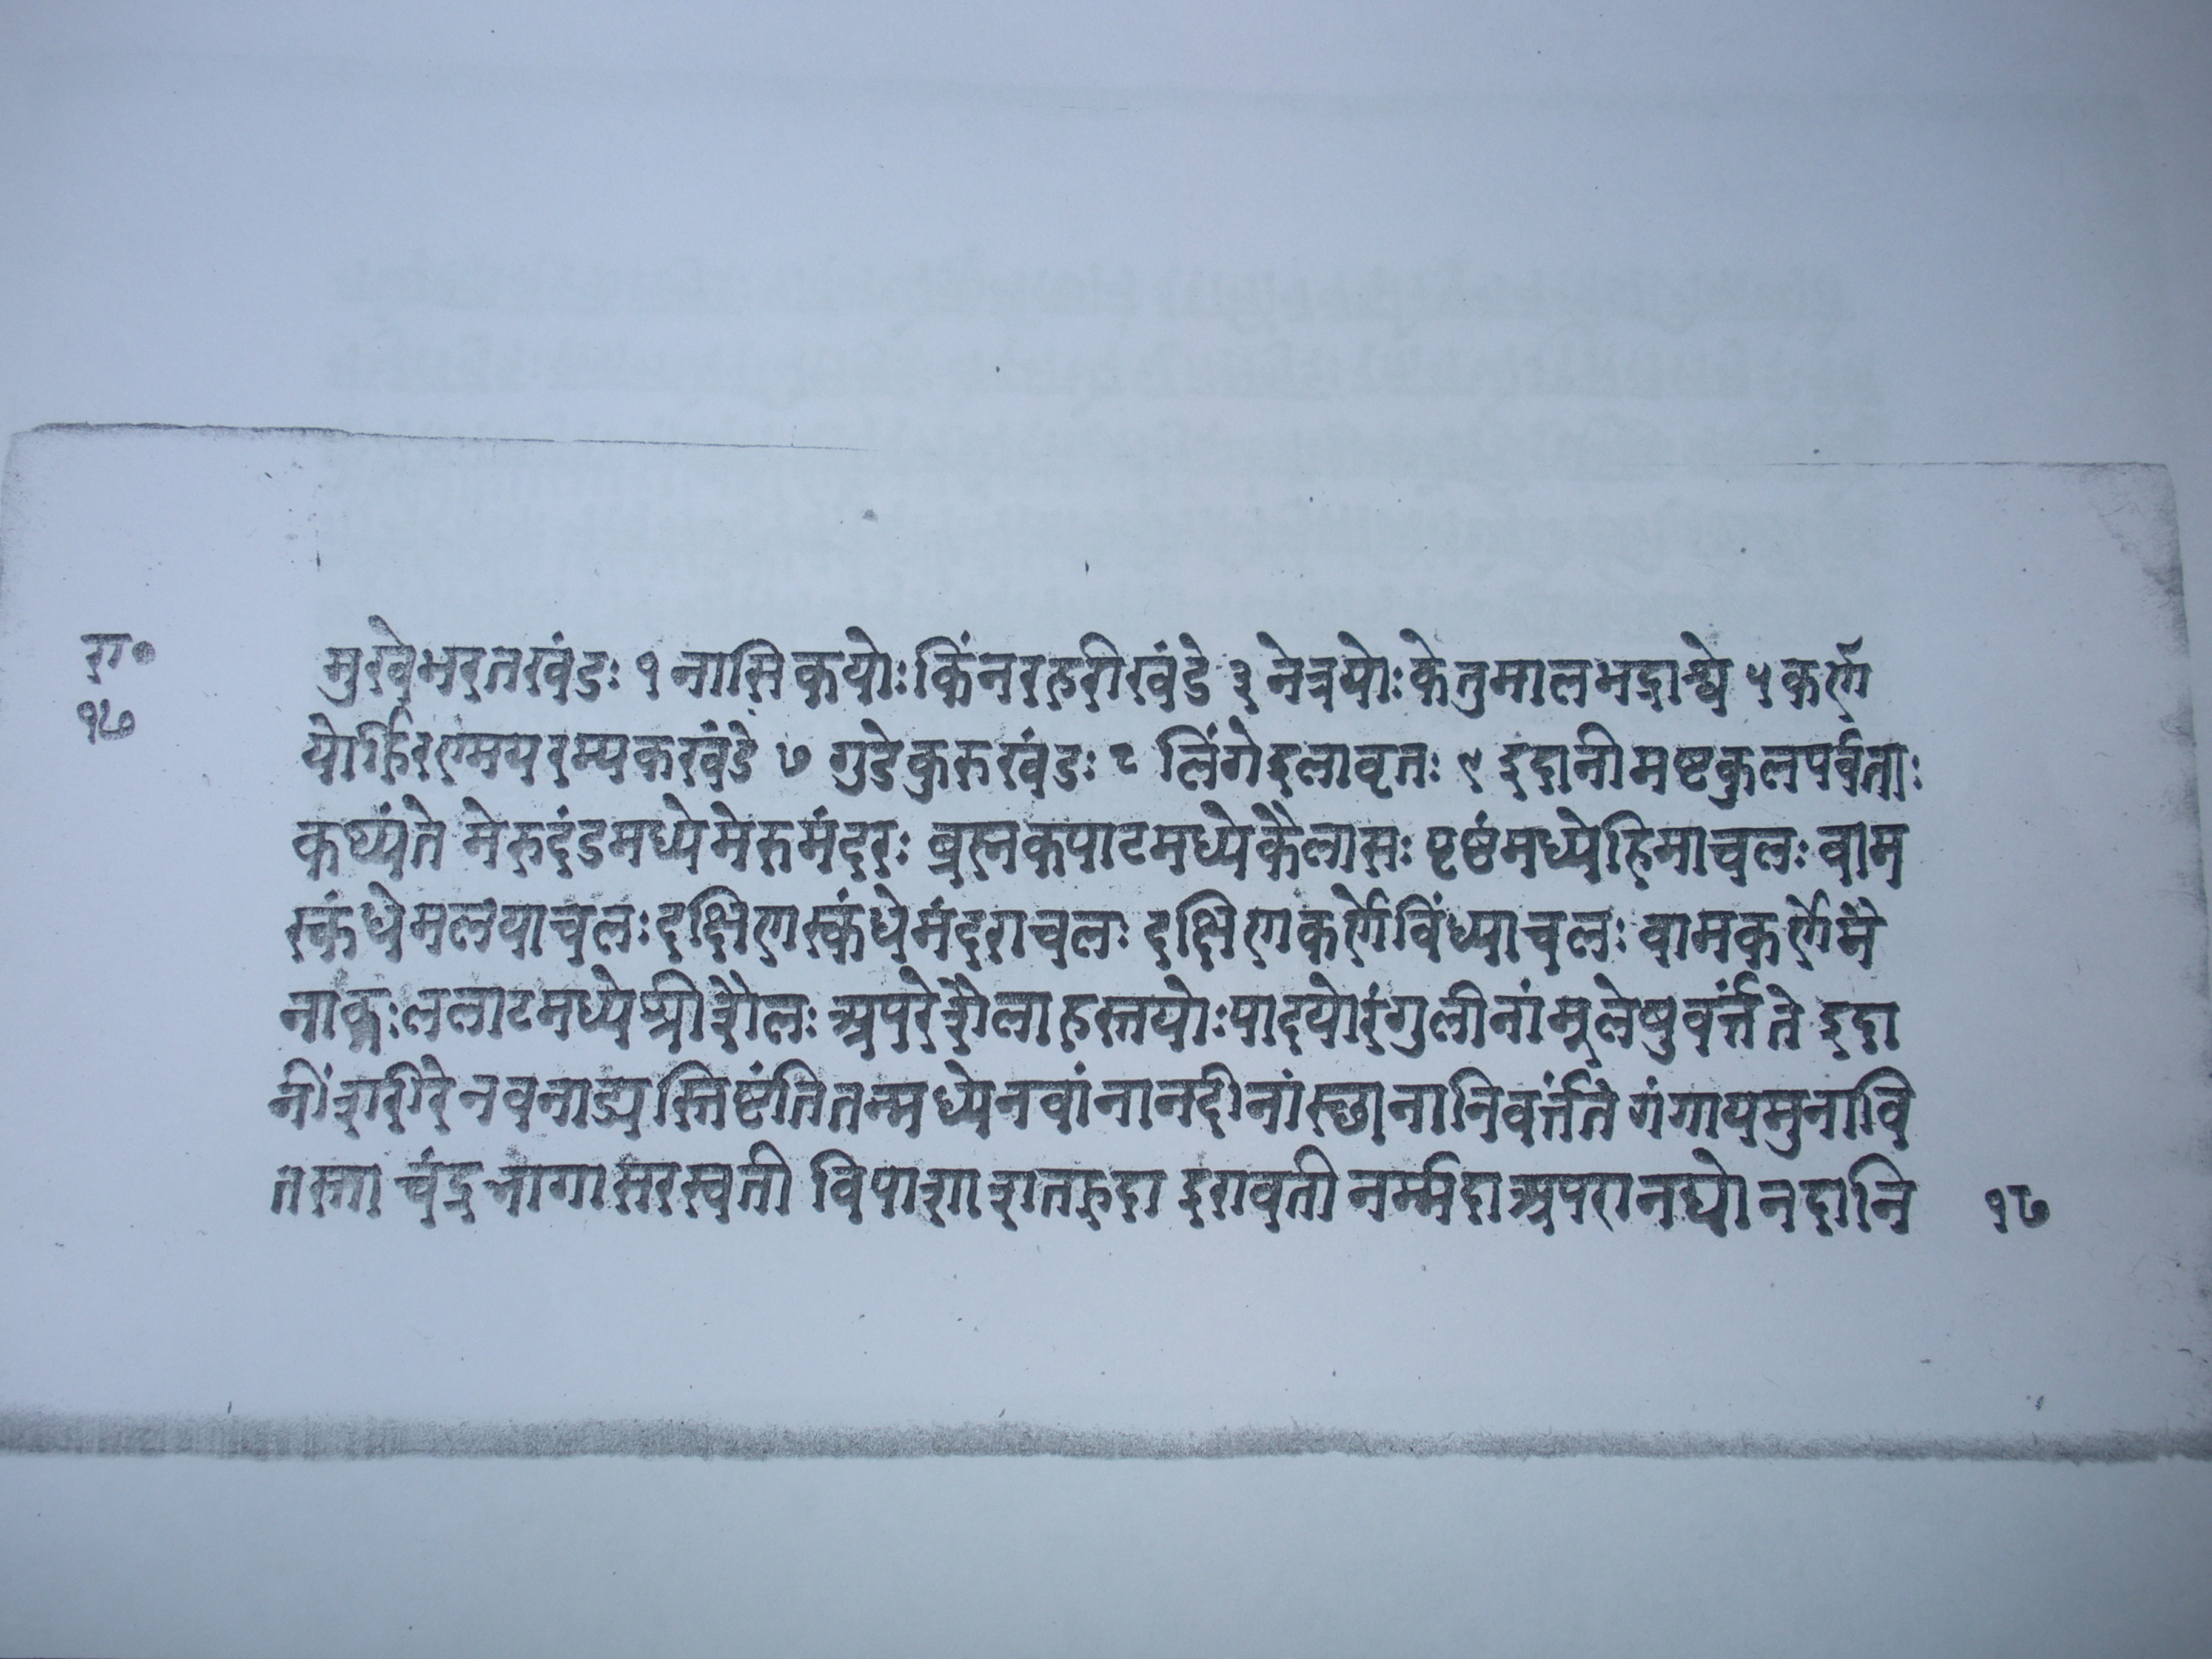 रा०
१७
मुखेभरतखंडः १ नासिकयोः किंनरहरीखंडे ३ नेत्रयोः केतुमालभद्राश्वे ५ कर्ण
योर्हिरण्मयरम्यकखंडे ७ गुडेकुरुखंडः ८ लिंगेइलावृतः ९ इदानीमष्टकुलपर्वताः
कथ्यंते मेरुदंडमध्येमेरुमंदरः ब्रह्मकपाटमध्येकैलासः पृष्ठंमध्येहिमाचलः वाम
स्कंधेमलयाचलः दक्षिणस्कंधेमंदराचलः दक्षिणकर्णेविंध्याचलः वामकर्णेमै
नाकः ललाटमध्येश्रीशैलः अपरेशैला हस्तयोः पादयोरंगुलीनांमूलेषुवर्त्तंते इदा
नींशरीरे नवनाड्यस्तिष्टंतितन्मध्येनवांनानदीनांस्छानानिवर्त्तंते गंगायमुनावि
तस्ता चंद्रभागा सरस्वती विपाशा शतह्रदा इरावती नर्म्मदा अपरानद्यो नदानि
१७